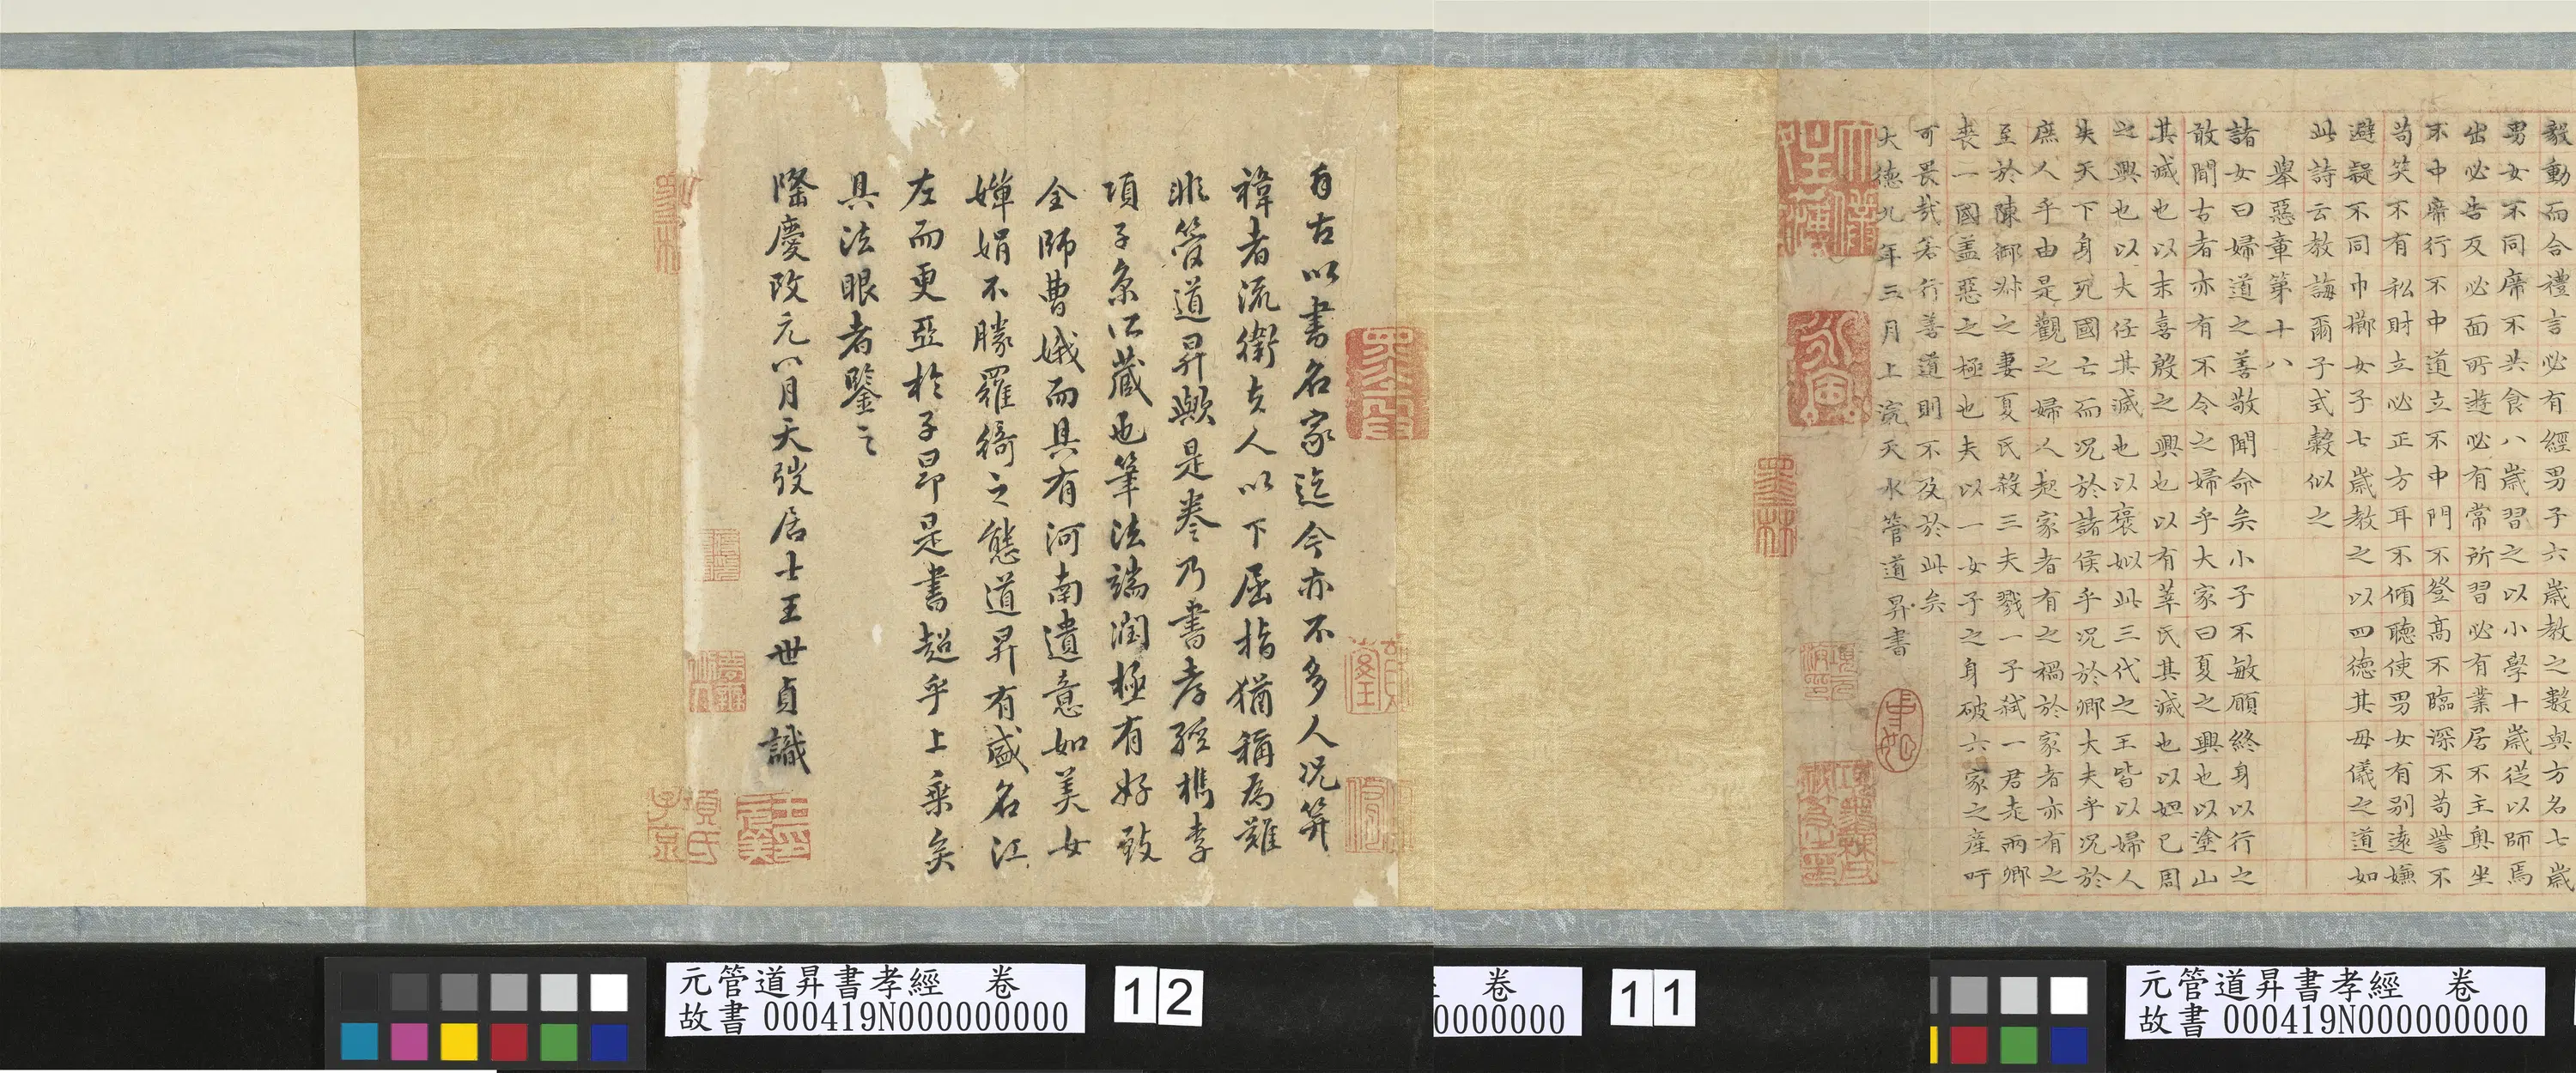 毅動而合禮言必有經男子六歲教之數與方名七歲
男女不同席不共食八歲習之以小學十歲從以師焉
出必告反必面所遊必有常所習必有業居不主奧坐
不中席行不中道立不中門不登高不臨深不苟訾不
苟笑不有私財立必正方耳不傾聽使男女有別遠嫌
避疑不同巾櫛女子七歲教之以四德其母儀之道如
此詩云教誨爾子式穀似之
舉惡章第十八
諸女曰婦道之善敬聞命矣小子不敏願終身以行之
敢聞古者亦有不令之婦乎大家曰夏之興也以塗山
其滅也以末喜殷之興也以有莘氏其滅也以妲己周
之興也以大任其滅也以褒姒此三代之王皆以婦人
失天下身死國亡而況於諸侯乎況於卿大夫乎況於
庶人乎由是觀之婦人起家者有之禍於家者亦有之
至於陳御叔之妻夏氏殺三夫戮一子弒一君走兩卿
喪一國盖惡之極也夫以一女子之身破六家之產吁
可畏哉若行善道則不及於此矣
大德九年三月上浣天水管道昇書
自古以書名家迄今亦不多人况笄
褘者流衛夫人以下屈指猶稱為難
非管道昇歟是卷乃書孝經檇李
項子京所藏也筆法端潤極有好致
全師曹娥而具有河南遺意如美女
嬋娟不勝羅綺之態道昇有盛名江
左而更亞於子昂是書超乎上乘矣
具法眼者鑒之
隆慶改元八月天弢居士王世貞識
項氏子京
王元美印
元管道昇書孝經 卷
故書000419N000000000
12
卷
0000000
11
元管道昇書孝經 卷
故書000419N000000000